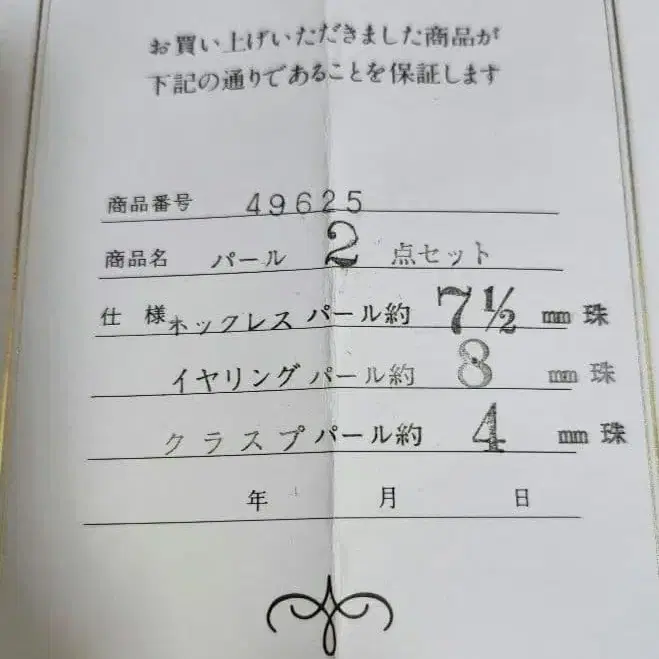 お買い上げいただきました商品が
下記の通りであることを保証します
商品番号 49625
商品名 パール 2 点セット
仕様 ネックレス パール約 7½ mm 珠
イヤリング パール約 8 mm 珠
クラスプ パール約 4 mm 珠
年 月 日